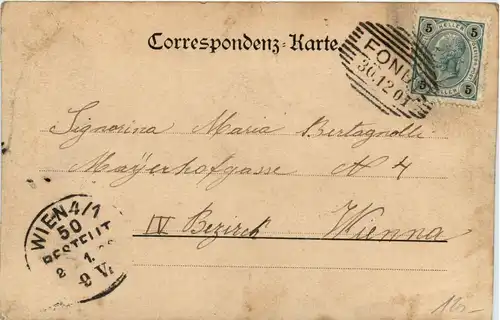 Correspondenz-Karte.
5 HELLER 5
5 HELLER 5
FOND
30.12.01
Signorina Maria Bertagnolli
Mayerhofgasse N 4
IV Bezirk Wienna
WIEN 4/1
50
BESTELLT
2 1.
2 V.